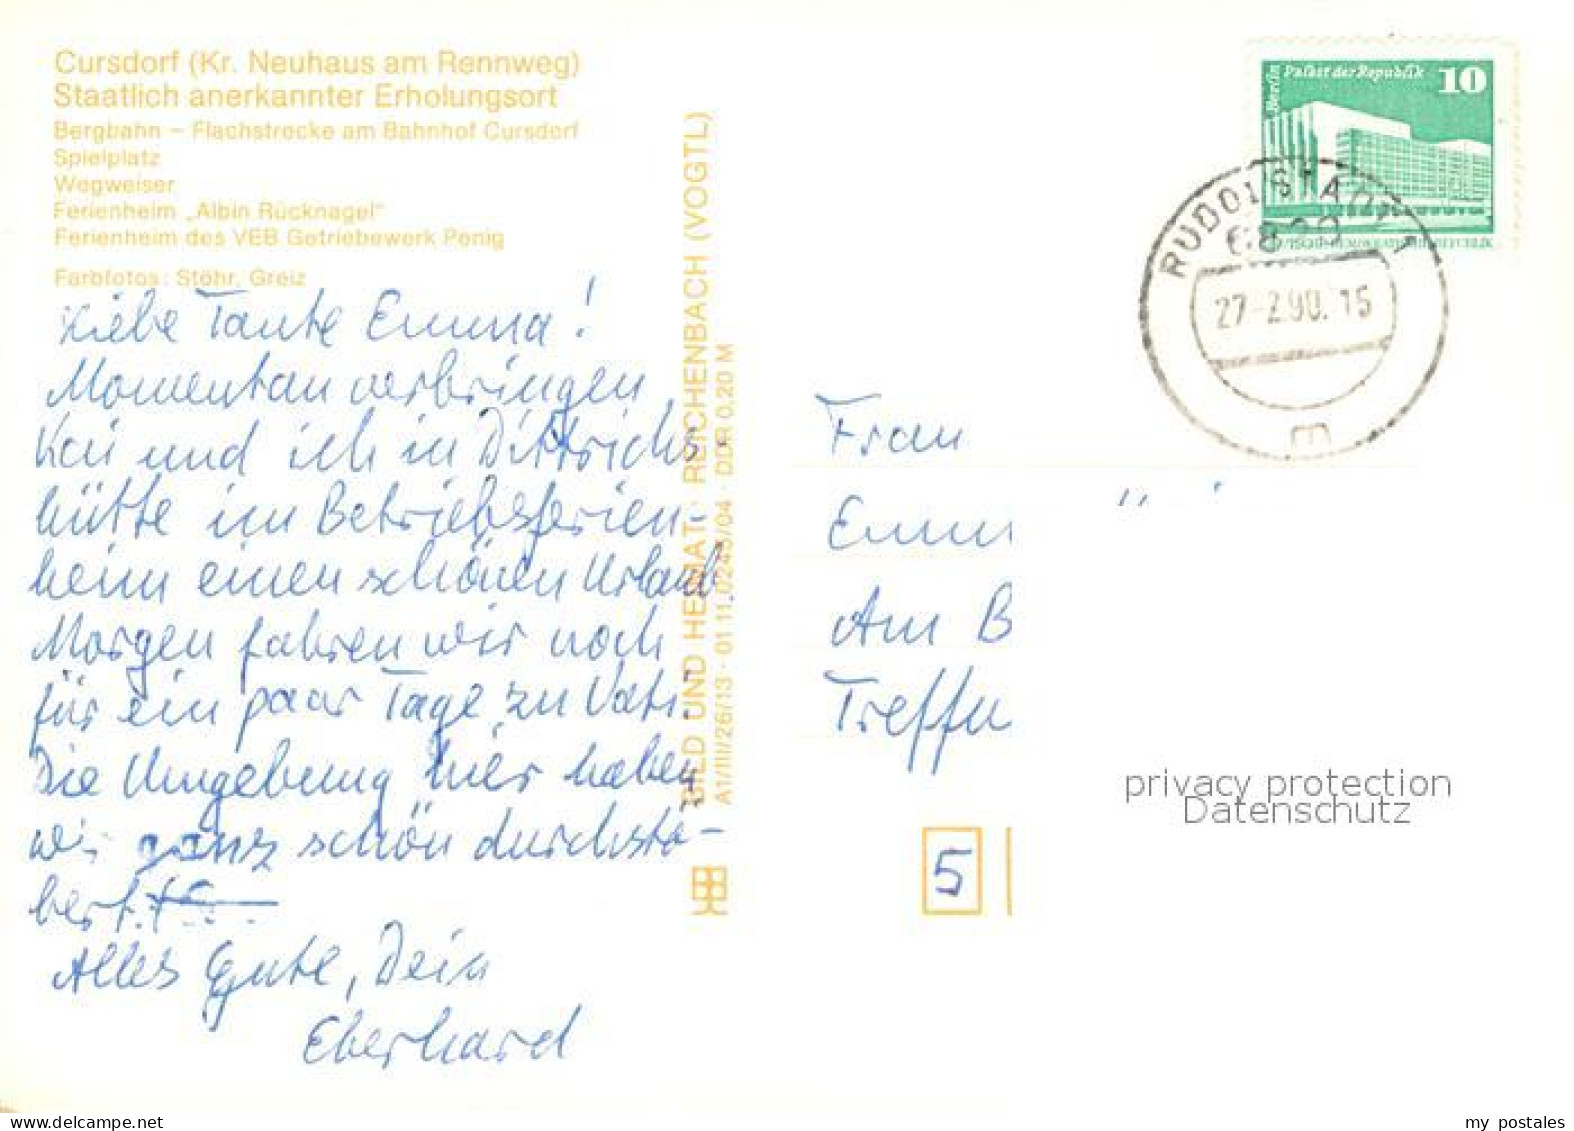 Cursdorf (Kr. Neuhaus am Rennweg)
Staatlich anerkannter Erholungsort
Bergbahn – Flachstrecke am Bahnhof Cursdorf
Spielplatz
Wegweiser
Ferienheim „Albin Rücknagel"
Ferienheim des VEB Getriebewerk Penig
Farbfotos: Stöhr, Greiz
Liebe Tante Emma!
Momentan verbringen
Kai und ich in Dittrichs-
hütte im Betriebsferien-
heim einen schönen Urlaub.
Morgen fahren wir noch
für ein paar Tage zu Vati.
Die Umgebung hier haben
wir ganz schön durchstö-
bert.
Alles Gute, Dein
Eberhard
BILD UND HEIMAT · REICHENBACH (VOGTL)
A1/III/26/13 · 01 11 0245/04 · DDR 0.20 M
Berlin Palast der Republik 10
DEUTSCHE DEMOKRATISCHE REPUBLIK
RUDOLSTADT 1
6820
27-2.90.15
m
Frau
Emm
Am B
Treffu
5
privacy protection
Datenschutz
www.delcampe.net
my postales